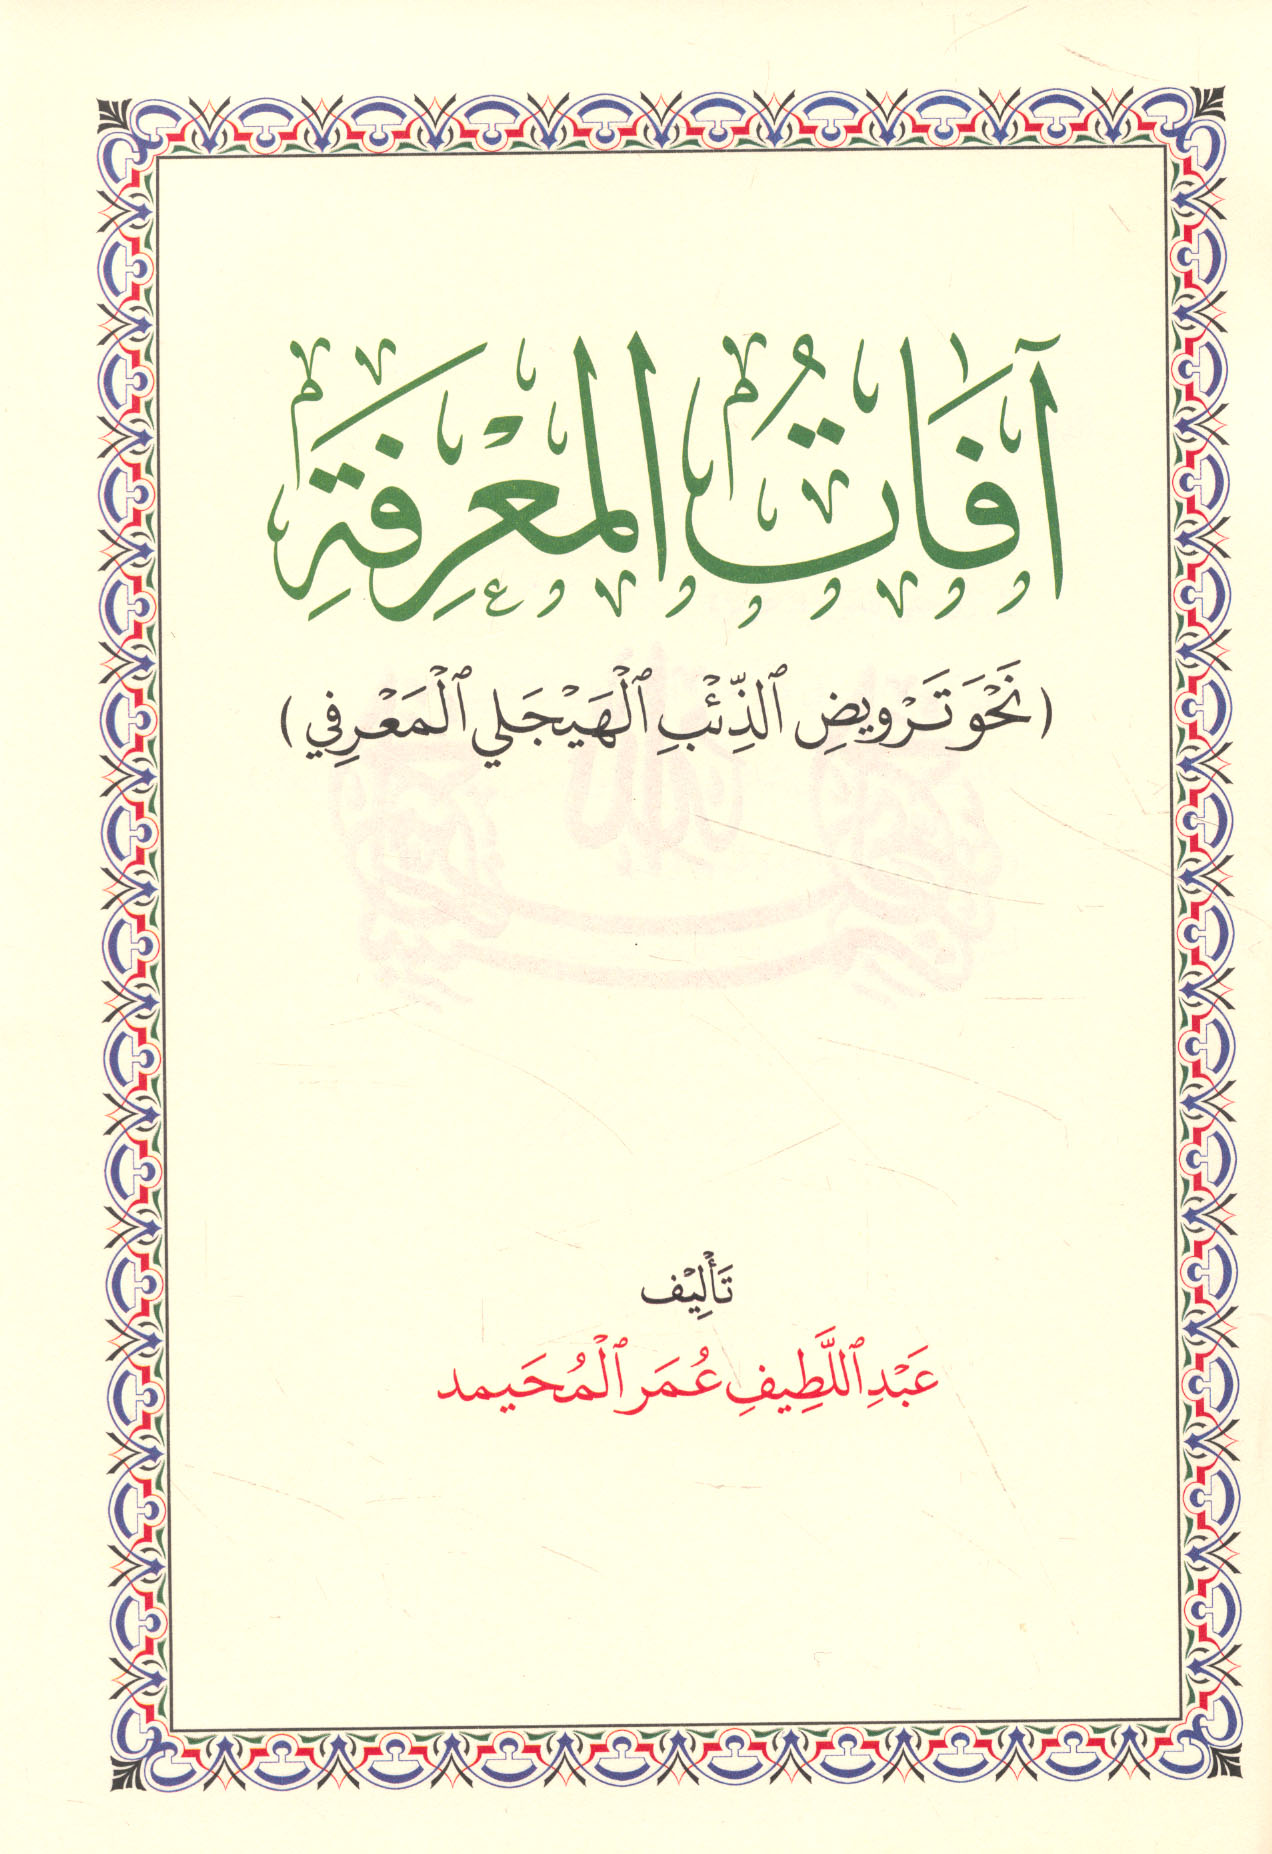 آفَاتُ الْمَعْرِفَةِ
(نَحْوَ تَرْوِيضِ ٱلذِّئْبِ ٱلْهَيْجَلِي ٱلْمَعْرِفِي)
تَأْلِيْف
عَبْدِ ٱللَّطِيفِ عُمَر ٱلْمُحَيمد